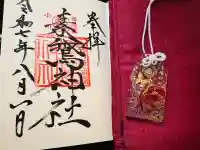 奉拝
素鵞神社
令和七年八月一日